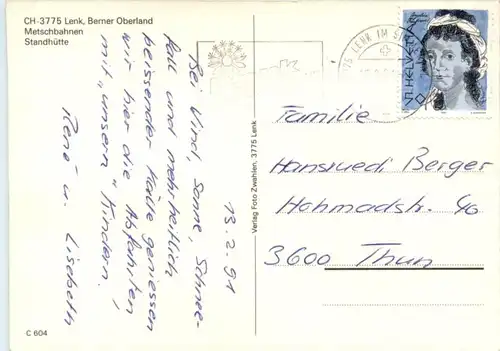 CH-3775 Lenk, Berner Oberland
Metschbahnen
Standhütte
13.2.91
Bei Wind, Sonne, Schnee-
fall und mehrheitlich
beissender Kälte geniessen
wir hier die Abfahrten
mit "unsern" Kindern.
René u. Lisebeth
C 604
Verlag Foto Zwahlen, 3775 Lenk
LENK IM
HELVETIA
Familie
Hansruedi Berger
Hohmadstr. 40
3600 Thun